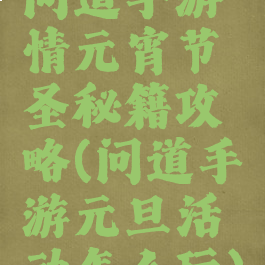 问道手游
情元宵节
圣秘籍攻
略(问道手
游元旦活
动怎么玩)